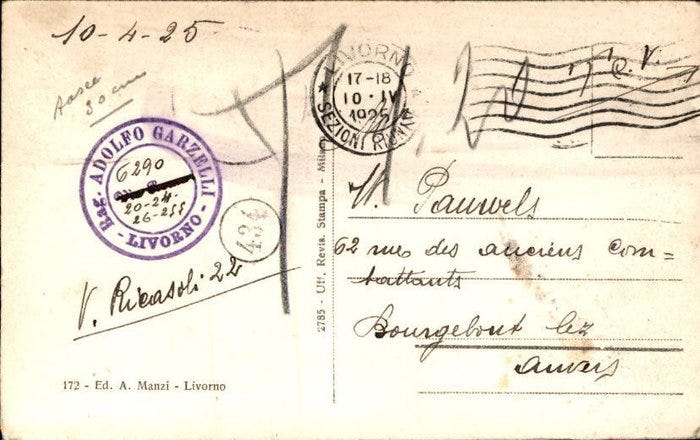 10-4-25
30 cms
LIVORNO
17-18
10·IV
1925
SEZIONI RIUNITE
Rag. ADOLFO GARZELLI
- LIVORNO -
6290
20-24-
26-255
434
V. Ricasoli 22
172 - Ed. A. Manzi - Livorno
2785 - Uff. Revis. Stampa - Milano
M. Pauwels
62 rue des anciens com=
battants
Bourgehout lez
Anvers